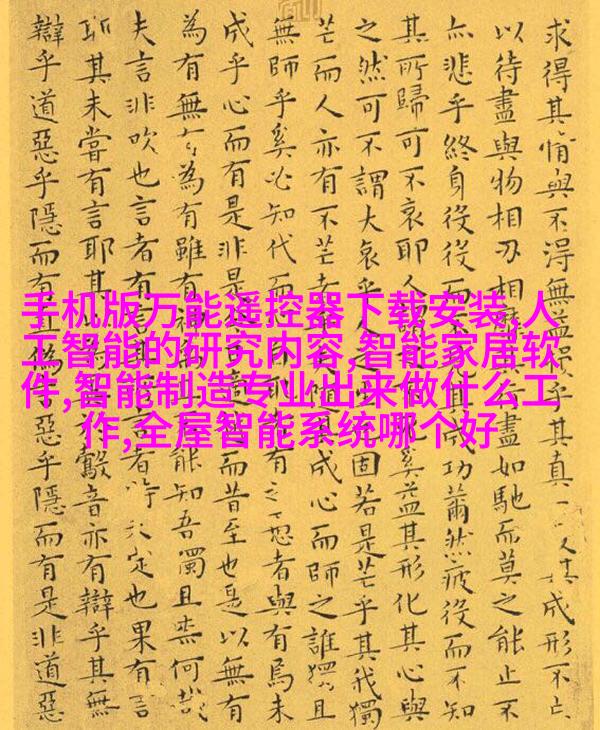 手机版万能遥控器下载安装,人
工智能的研究内容,智能家居软
件,智能制造专业出来做什么工
作,全屋智能系统哪个好
求得其情與不得無益損乎其真人其成形不亡
以待盡與物相刃相靡盡如馳而莫之能止不
亦悲乎終身役役而不成功薾然疲役而不知
其所歸可不哀耶人謂奚益其形化其心與
之然可不謂大哀乎人之固若是芒乎其我獨
芒而人亦有不芒者其成心而師之誰獨且
無師乎奚必知代而有之愚者與有焉未
成乎心而有是非是而昔至也是以無有
為有無有為有雖有神能知吾獨且柰何哉
夫言非吹也言者有言者特未定也果有言
耶其未嘗有言耶其以鷇音亦有辯乎其無
辯乎道惡乎隱而有真偽惡乎隱而有是非道惡